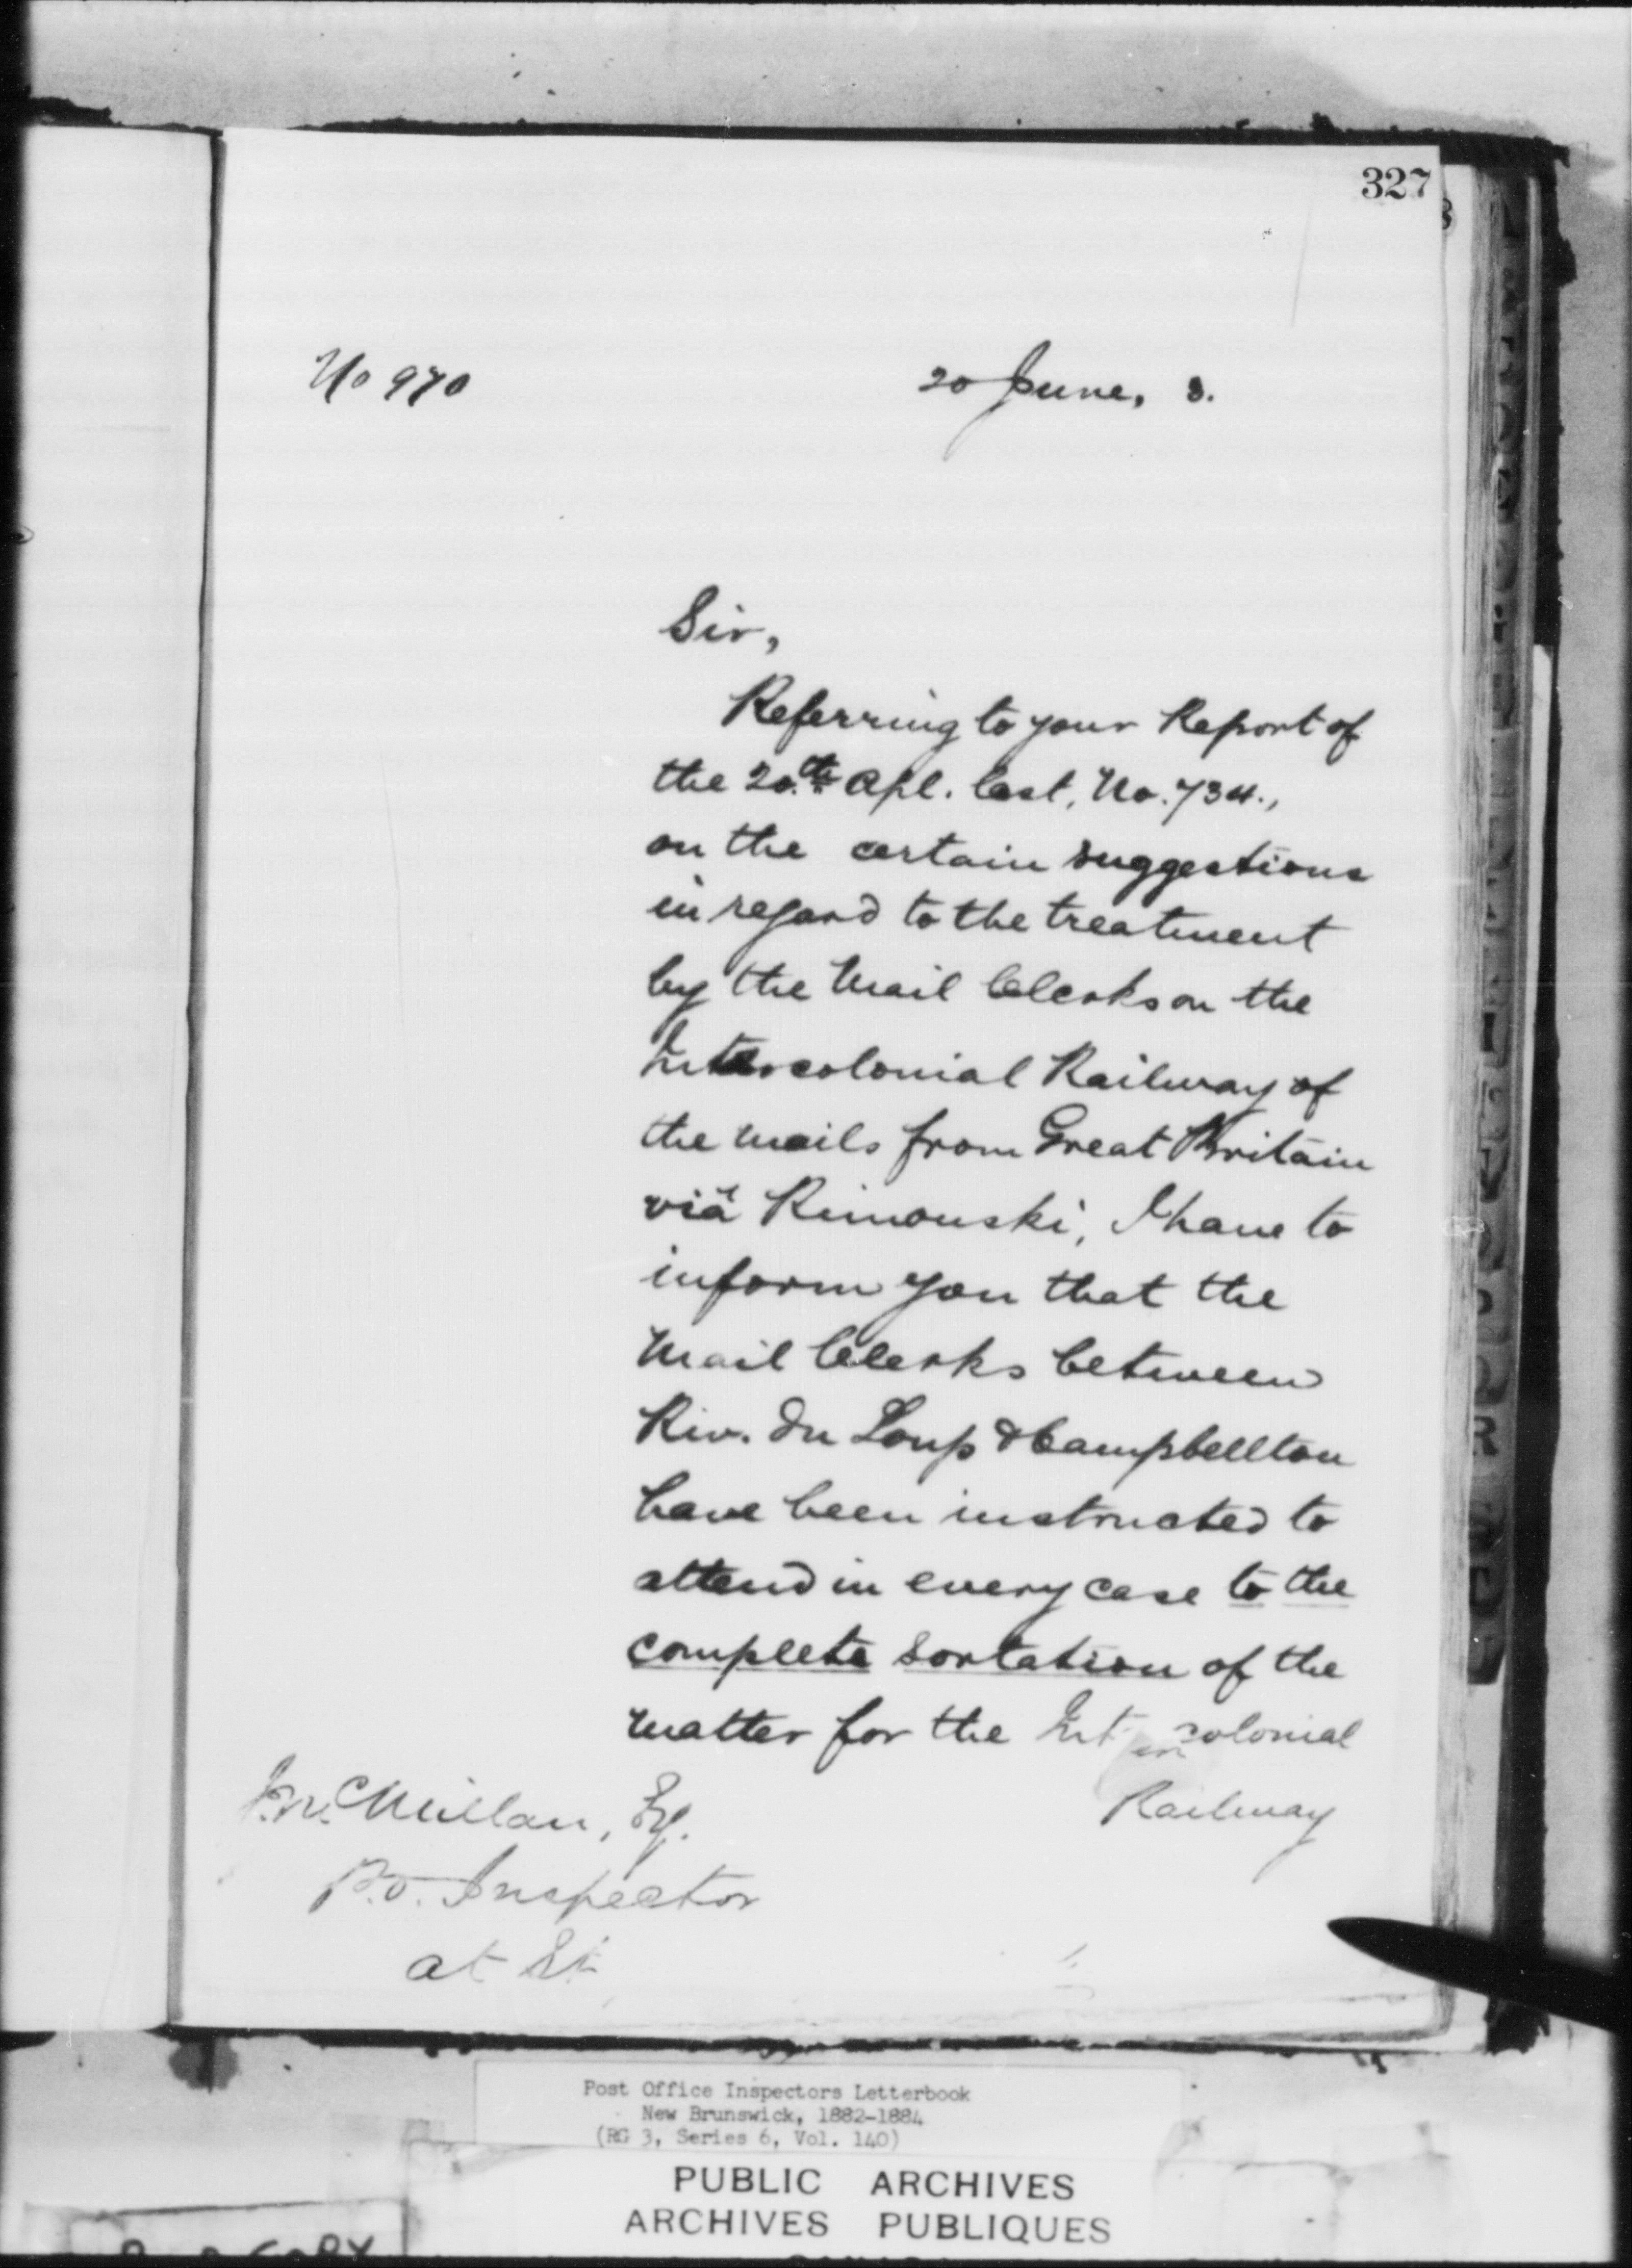 327
No 970
20 June, 3.
Sir,
Referring to your Report of
the 20.th Apl. last, No. 734.,
on the certain suggestions
in regard to the treatment
by the Mail Clerks on the
Intercolonial Railway of
the mails from Great Britain
viâ Rimouski, I have to
inform you that the
Mail Clerks between
Riv. du Loup & Campbellton
have been instructed to
attend in every case to the
complete sortation of the
matter for the Intercolonial
Railway
J. McMillan, Esq.
P.O. Inspector
at St.
Post Office Inspectors Letterbook
New Brunswick, 1882-1884
(RG 3, Series 6, Vol. 140)
PUBLIC ARCHIVES
ARCHIVES PUBLIQUES
COPY